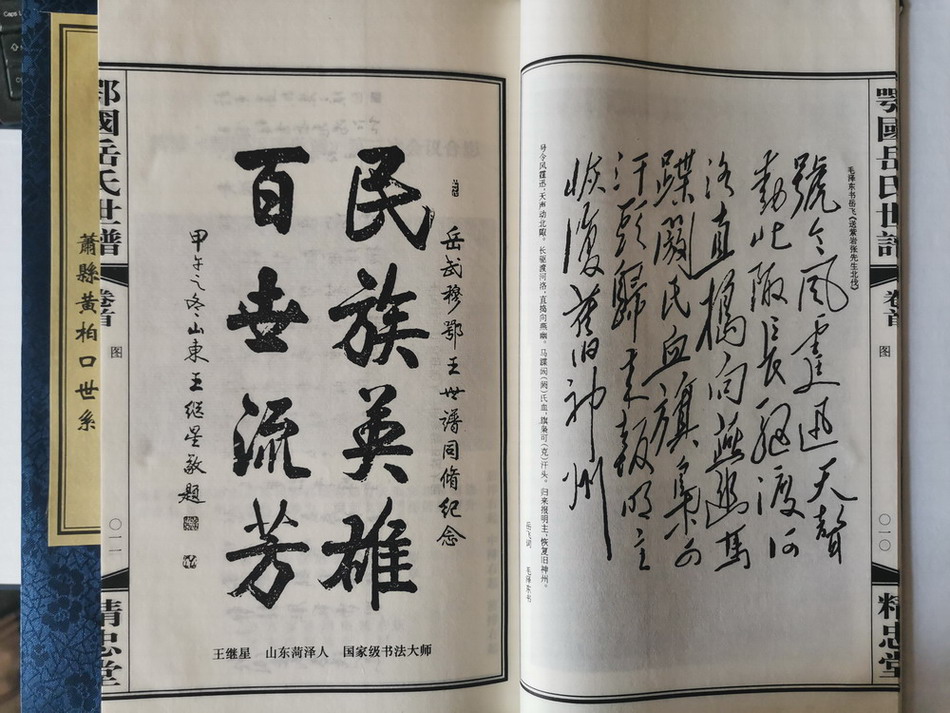 鄂國岳氏世譜
卷首
图
〇一〇
精忠堂
毛泽东书岳飞《送紫岩张先生北伐》
號令风霆迅天聲
動北陬长驱渡河
洛直搗向燕幽馬
蹀阏氏血旗枭可
汗頭歸来報明主
恢復舊神州
号令风霆迅，天声动北陬。长驱渡河洛，直捣向燕幽。马蹀阏(阏)氏血，旗枭可(克)汗头。归来报明主，恢复旧神州。
岳飞词 毛泽东书
岳武穆鄂王世谱同脩纪念
民族英雄
百世流芳
甲午之冬山東王继星敬题
王继星 山东菏泽人 国家级书法大师
鄂國岳氏世譜
卷首
图
〇一一
精忠堂
蕭縣黄柏口世系